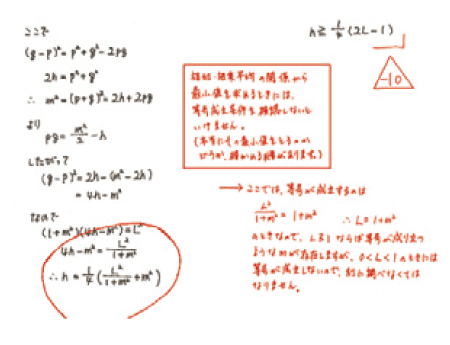 ここで
(q-p)² = p²+q²-2pq
2h = p²+q²
∴ m² = (p+q)² = 2h+2pq
より
pq = m²/2 - h
したがって
(q-p)² = 2h-(m²-2h)
= 4h-m²
なので
(1+m²)(4h-m²) = L²
4h-m² = L²/(1+m²)
∴ h = 1/4 (L²/(1+m²) + m²)
h ≧ 1/4 (2L-1)
-10
相加・相乗平均の関係から
最小値を求めるときには、
等号成立条件を確認しないと
いけません。
(本当にその最小値をとるのか
どうか、確かめる必要があります。)
→ ここでは、等号が成立するのは
L²/(1+m²) = 1+m² ∴ L = 1+m²
のときなので、L≧1ならば等号が成り立つ
ようなmが存在しますが、0<L<1のときには
等号が成立しないので、別に調べなくては
なりません。